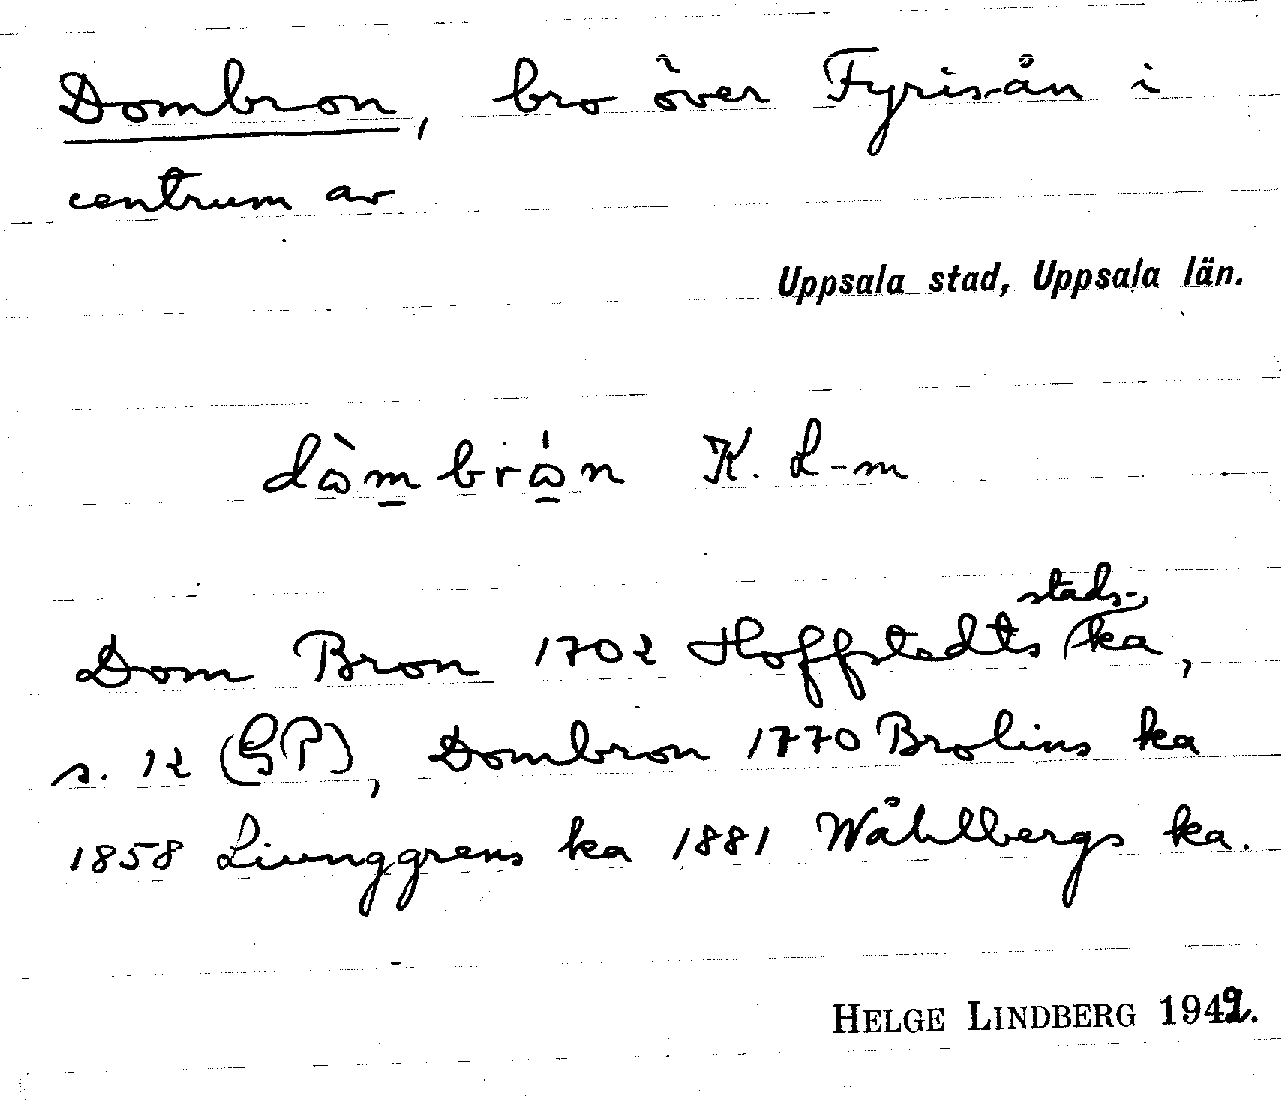 Dombron, bro över Fyrisån i
centrum av
Uppsala stad, Uppsala län.
K. L-m
Dom Bron 1702 Hoffstedts stads-ka,
s. 12 (GP), Dombron 1770 Brolins ka
1858 Ljunggrens ka 1881 Wåhlbergs ka.
HELGE LINDBERG